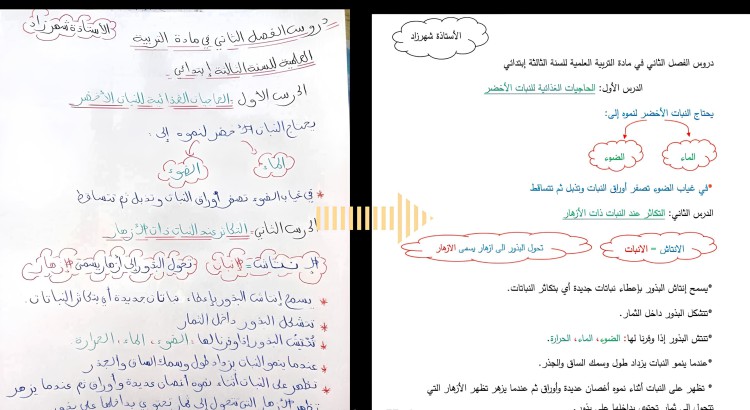 الأستاذة شهرزاد
دروس الفصل الثاني في مادة التربية
العلمية للسنة الثالثة إبتدائي
الدرس الأول: الحاجيات الغذائية للنبات الأخضر
يحتاج النبات الأخضر لنموه إلى:
الماء
الضوء
* في غياب الضوء تصفر أوراق النبات وتذبل ثم تتساقط
الدرس الثاني: التكاثر عند النباتات ذات الأزهار
الإنتاش = الإنبات
تحول البذور إلى أزهار يسمى الإزهار
* يسمح إنتاش البذور بإعطاء نباتات جديدة أو يتكاثر النباتات.
* تتشكل البذور داخل الثمار
* تُنتِش البذور إذا وفرنا لها، الضوء، الماء، الحرارة.
* عندما ينمو النبات يزداد طول وسمك الساق والجذر
* تظهر على النبات أثناء نموه أغصان عديدة وأوراق ثم عندما يزهر
الأستاذة شهرزاد
دروس الفصل الثاني في مادة التربية العلمية للسنة الثالثة إبتدائي
الدرس الأول: الحاجيات الغذائية للنبات الأخضر
يحتاج النبات الأخضر لنموه إلى:
الماء
الضوء
*في غياب الضوء تصفر أوراق النبات وتذبل ثم تتساقط
الدرس الثاني: التكاثر عند النبتات ذات الأزهار
الانتاش = الانبات
تحول البذور الى ازهار يسمى الازهار
*يسمح إنتاش البذور بإعطاء نباتات جديدة أي بتكاثر النباتات.
*تتشكل البذور داخل الثمار.
*تنتش البذور إذا وفرنا لها: الضوء، الماء، الحرارة.
*عندما ينمو النبات يزداد طول وسمك الساق والجذر.
* تظهر على النبات أثناء نموه أغصان عديدة وأوراق ثم عندما يزهر تظهر الأزهار التي
تتحول إلى ثمار تحتوي بداخلها على بذور